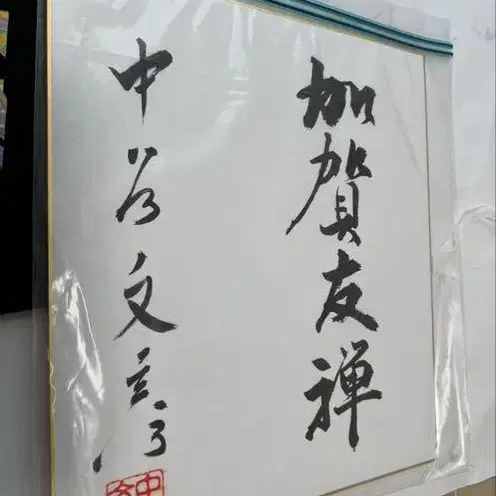 加賀友禅
中谷文彦